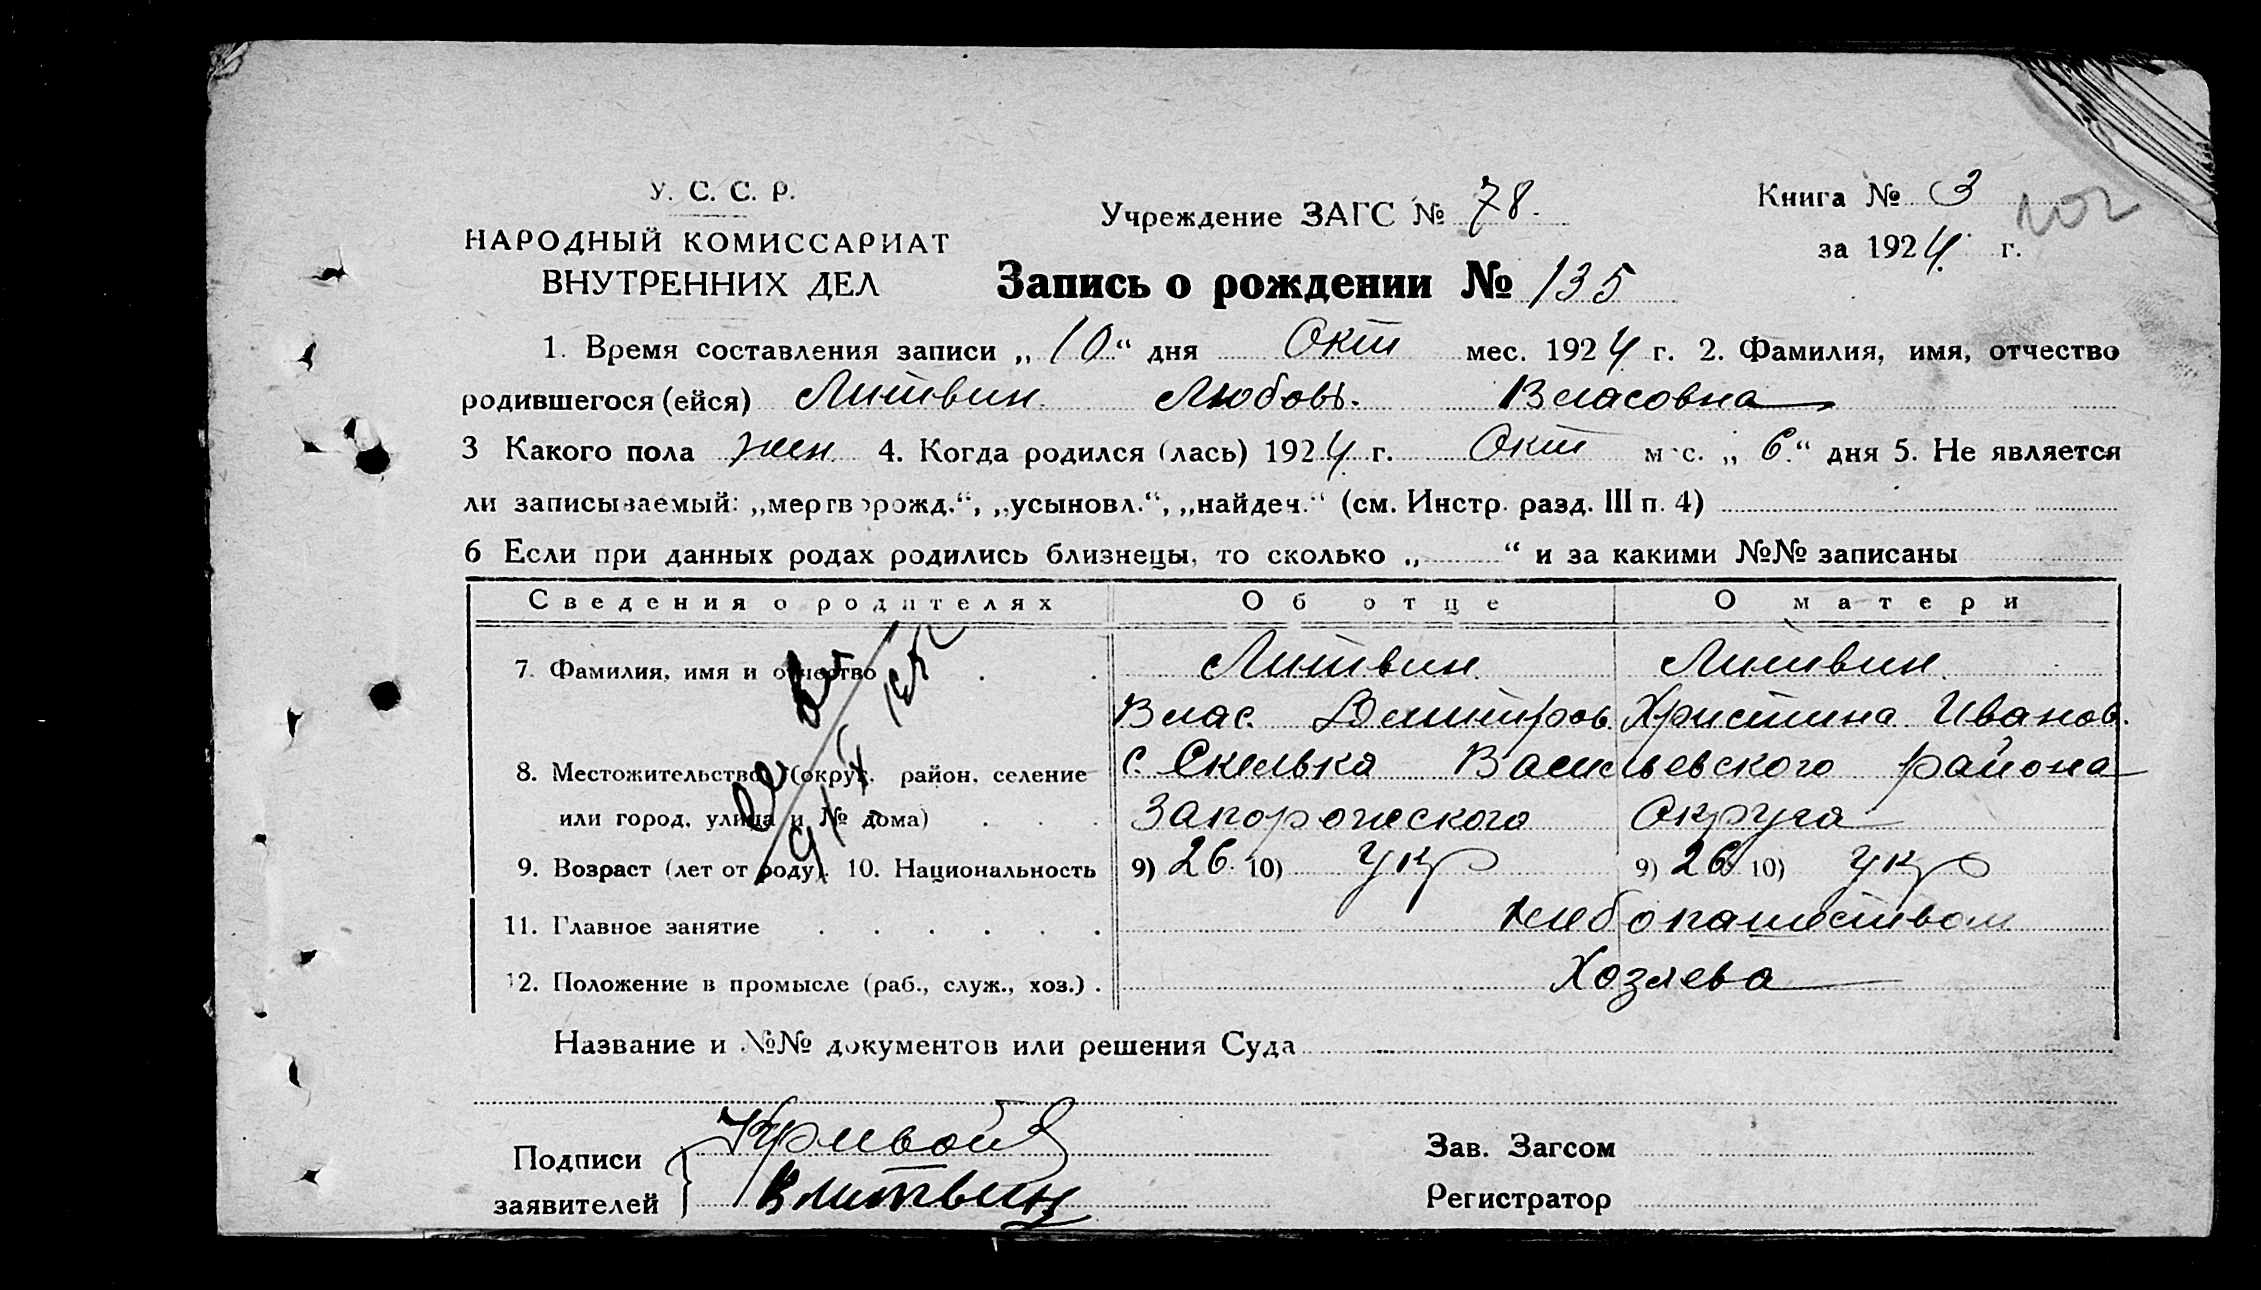 У. С. С. Р.
НАРОДНЫЙ КОМИССАРИАТ
ВНУТРЕННИХ ДЕЛ
Учреждение ЗАГС № 78.
Книга № 3
102
за 1924 г.
Запись о рождении № 135
1. Время составления записи „10“ дня Окт мес. 1924 г. 2. Фамилия, имя, отчество
родившегося (ейся) Литвин Любовь. Власовна
3 Какого пола жен 4. Когда родился (лась) 1924 г. Окт мес. „6“ дня 5. Не является
ли записываемый: „мертворожд.“, „усыновл.“, „найдеч.“ (см. Инстр. разд. III п. 4)
6 Если при данных родах родились близнецы, то сколько „ “ и за какими №№ записаны
Сведения о родителях Об отце О матери
7. Фамилия, имя и отчество Литвин Литвин
Влас. Дмитров. Христина Иванов.
8. Местожительство (округ, район, селение с. Скелька Васильевского района
или город, улица и № дома) Запорожского Округа
9. Возраст (лет от роду). 10. Национальность 9) 26. 10) укр 9) 26 10) укр
11. Главное занятие хлебопашеством
12. Положение в промысле (раб., служ., хоз.) Хозяева
Название и №№ документов или решения Суда
Подписи Кривой Зав. Загсом
заявителей В Литвин Регистратор